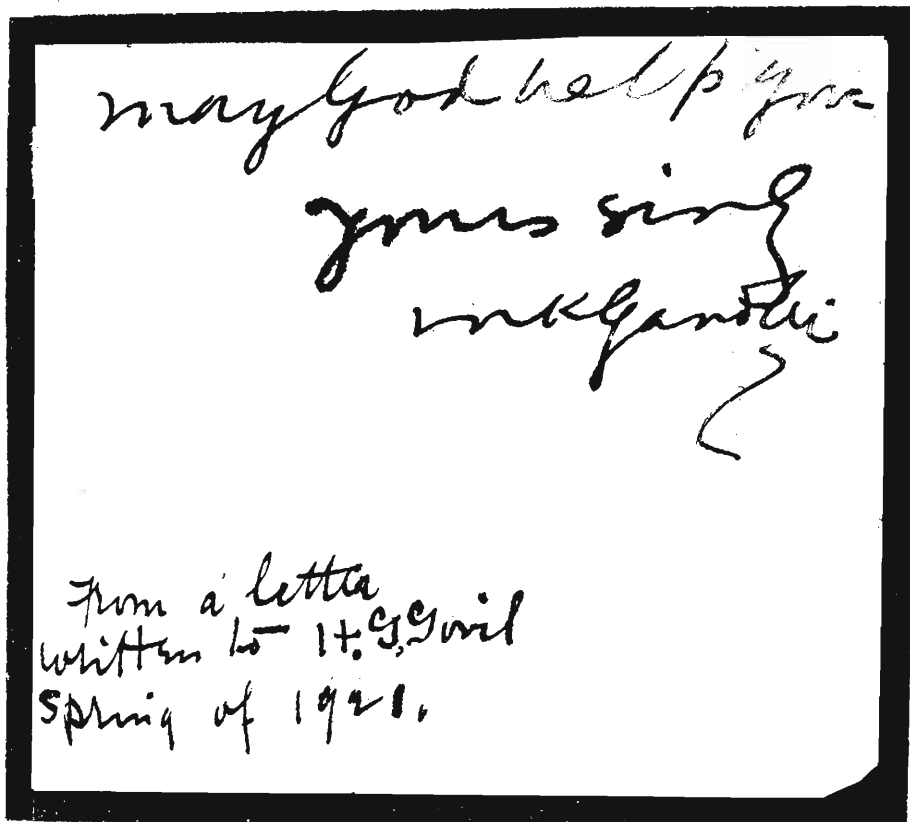 may God help you
yours sincly
MKGandhi
From a letter
written to H.G.Govil
Spring of 1921.